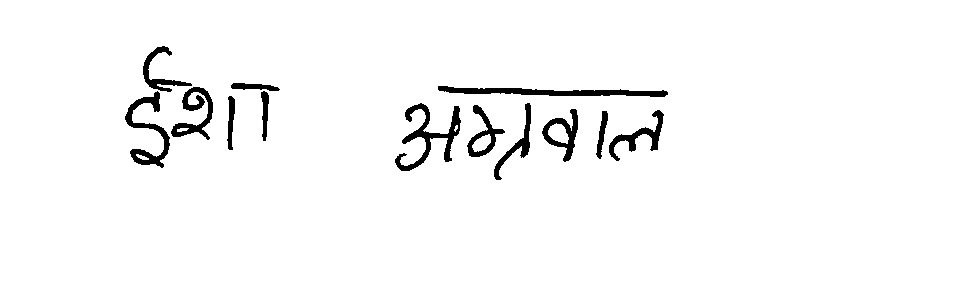 ईशा अग्रवाल